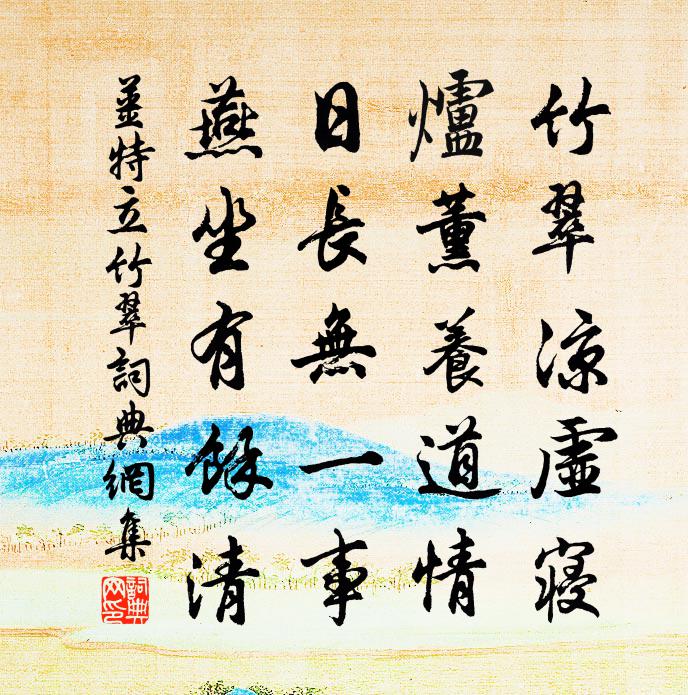 竹翠涼虛寢
爐薰養道情
日長無一事
燕坐有餘清
姜特立竹翠詞典網集
詞典網印